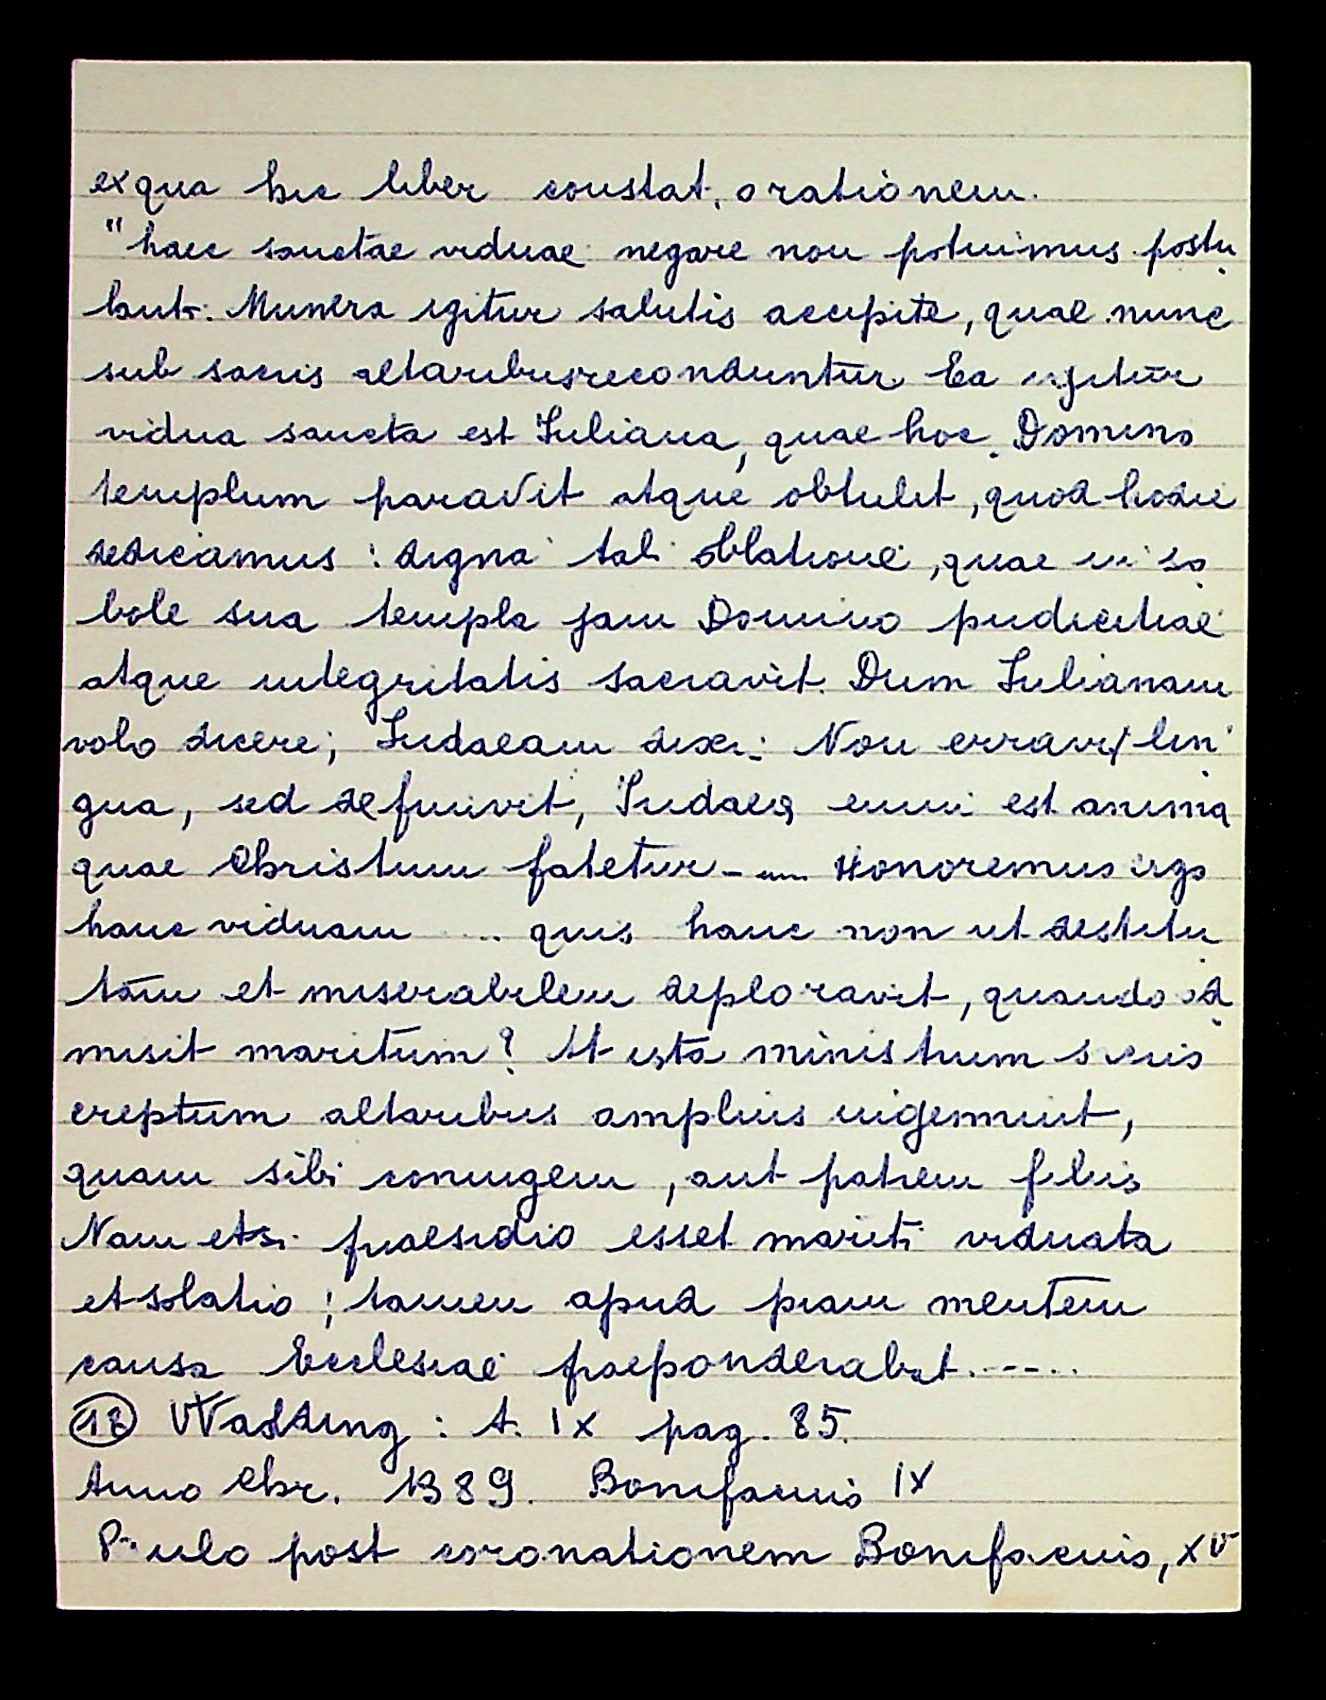 ex qua hic liber constat, orationem.
"haec sanctae viduae negare non potuimus postu
lanti. Munera igitur salutis accipite, quae nunc
sub sacris altaribus reconduntur. Ea igitur
vidua sancta est Iuliana, quae hoc Domino
templum paravit atque obtulit, quod hodie
dedicamus: digna tali oblatione, quae in so
bole sua templa jam Domino pudicitiae
atque integritatis sacravit. Dum Iulianam
volo dicere; Iudaeam dixi: Non erravit lin
gua, sed definivit, Iudaea enim est anima
quae Christum fatetur - .... Honoremus ergo
hanc viduam .... quis hanc non ut destitu
tam et miserabilem deploravit, quando ad
misit maritum? At ista ministrum sacris
ereptum altaribus amplius ingemuit,
quam sibi coniugem, aut patrem filiis
Nam etsi praesidio esset mariti viduata
et solatio; tamen apud piam mentem
causa Ecclesiae praeponderabat.----..
(18) Wadding: t. IX pag. 85.
Anno Chr. 1389. Bonifacius IX
Paulo post coronationem Bonifacius, XV